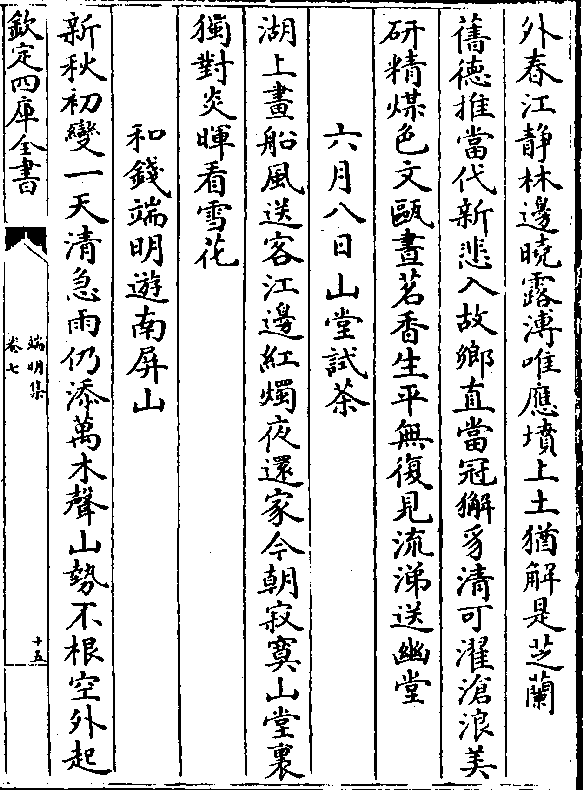 外春江静林邊曉露溥唯應墳上土猶解是芝蘭
舊德推當代新悲入故鄉直當冠獬豸清可濯滄浪美
研精煤色文甌畫茗香生平無復見流涕送幽堂
六月八日山堂試茶
湖上畫船風送客江邊紅燭夜還家今朝寂寞山堂裏
獨對炎暉看雪花
和錢端明遊南屏山
新秋初變一天清急雨仍添萬木聲山勢不根空外起
欽定四庫全書
端明集
卷七
十五